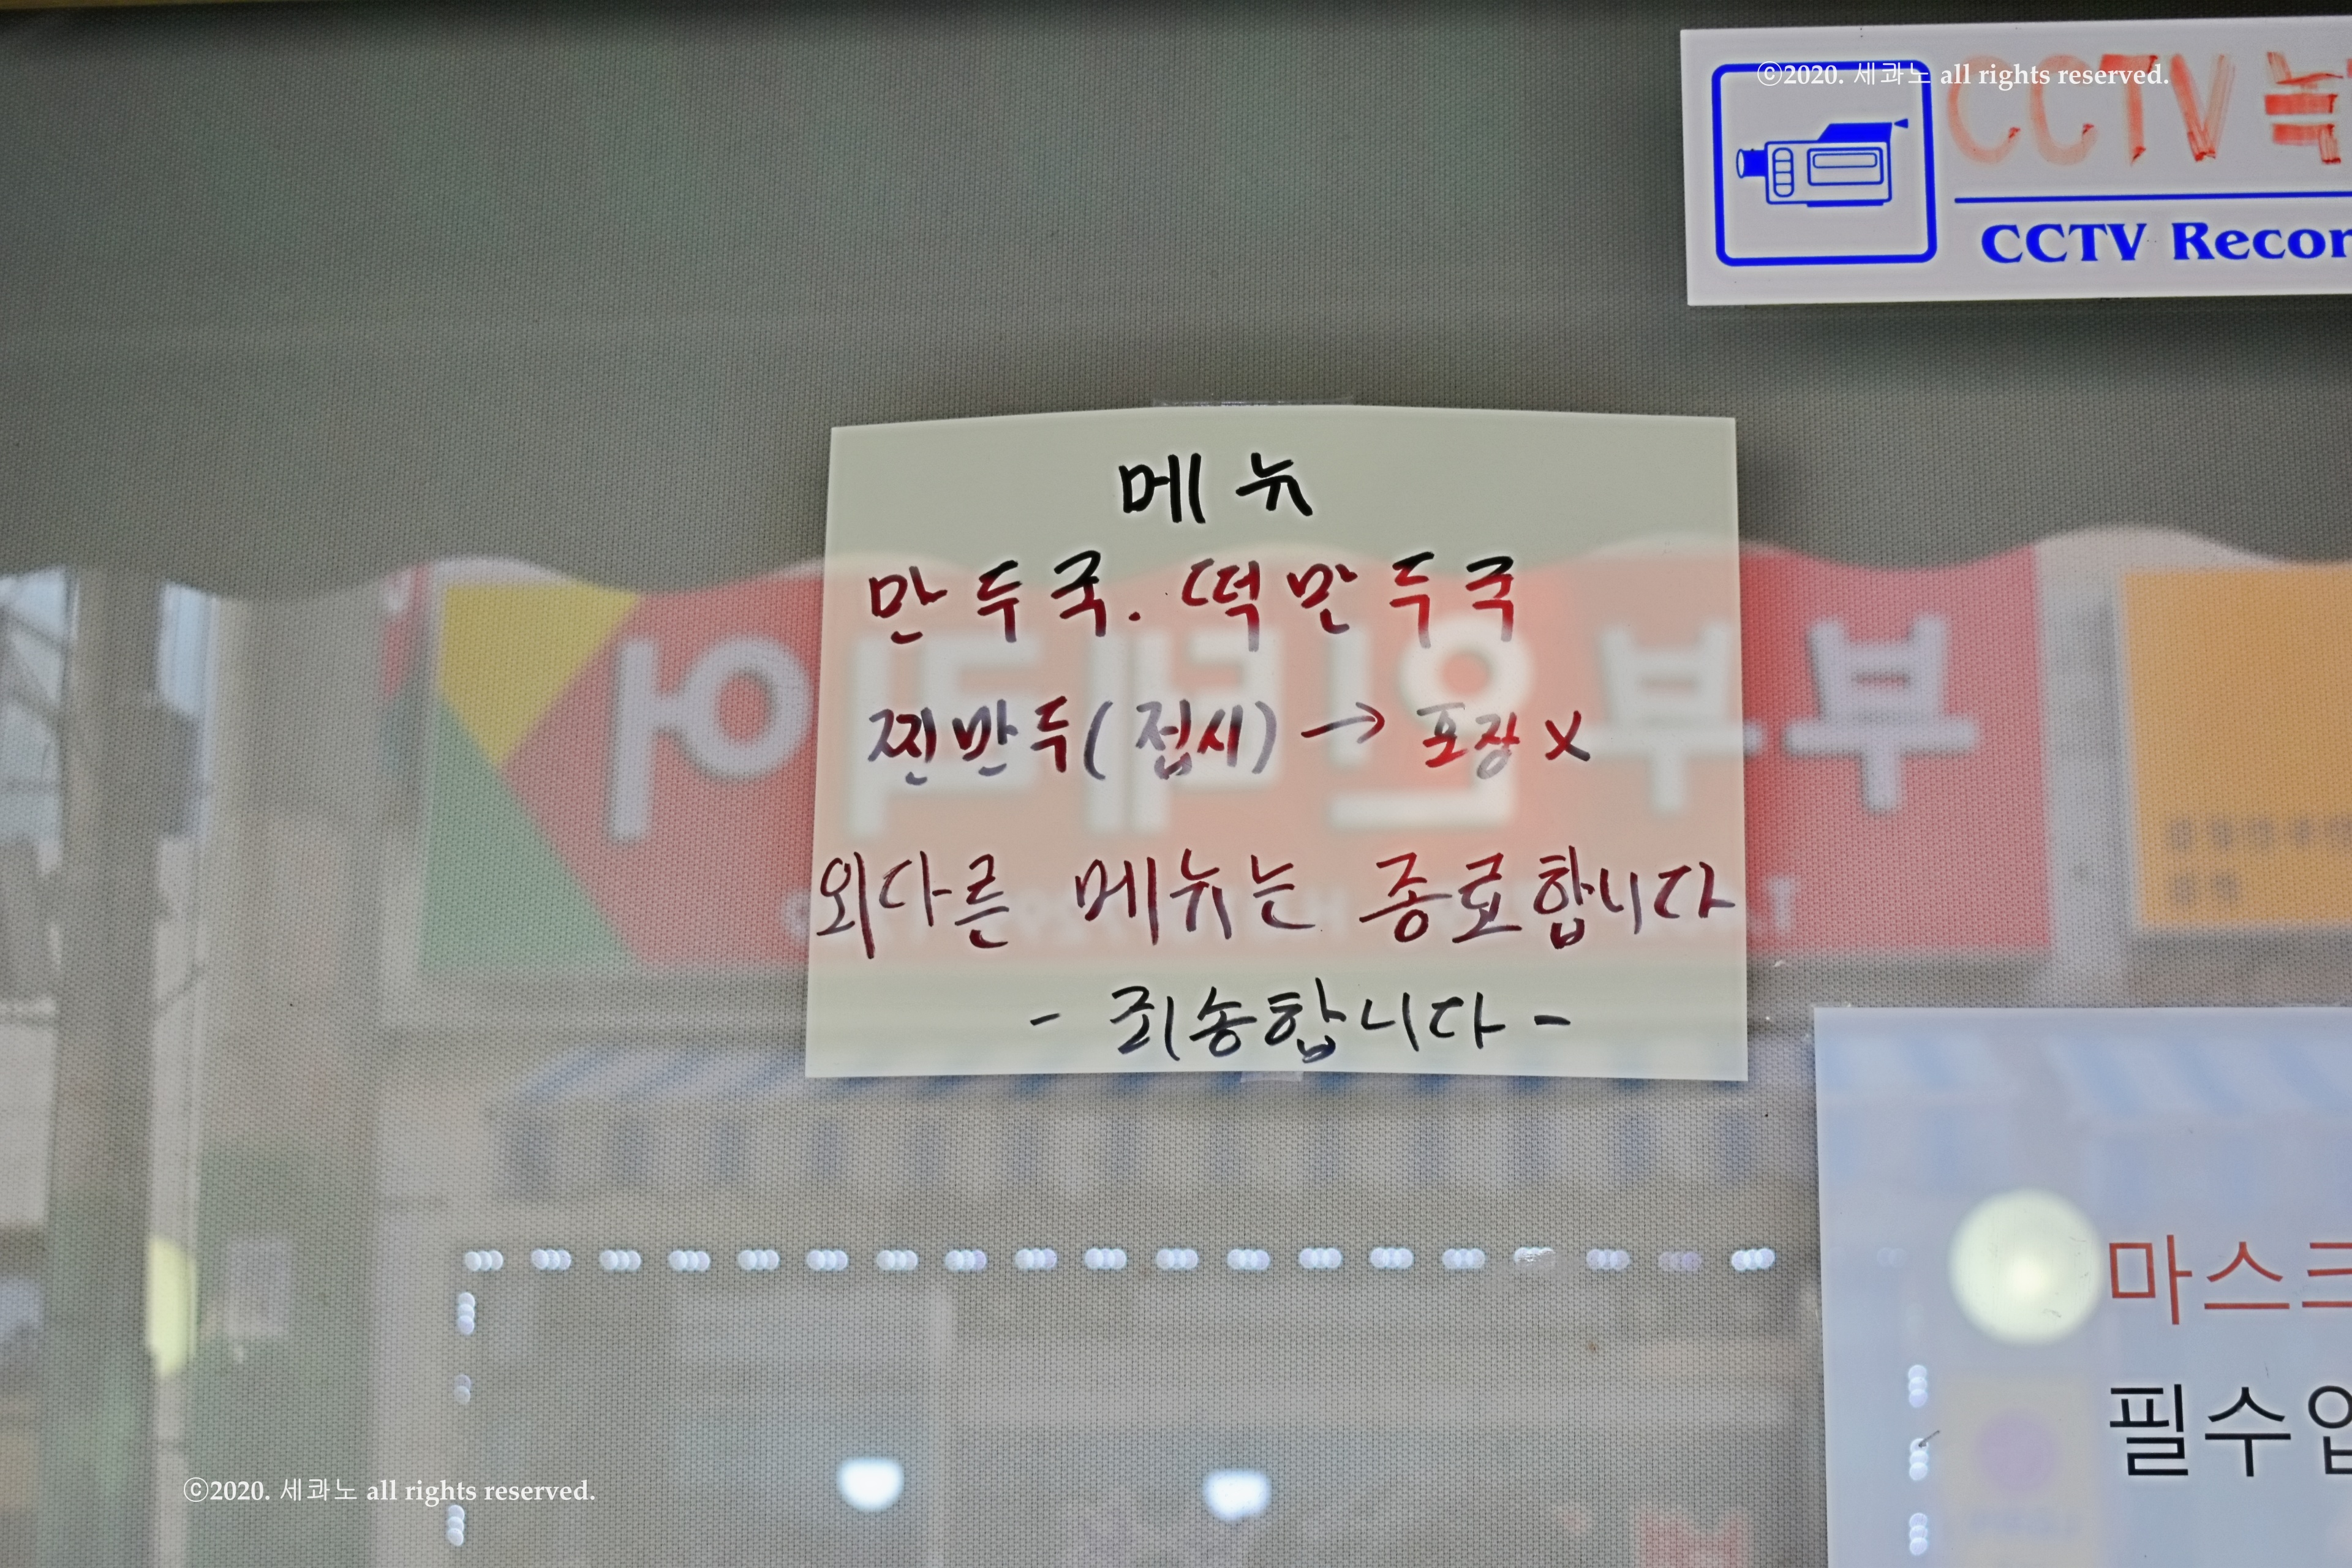 ©2020. 세콰노 all rights reserved.
CCTV 녹
CCTV Recor
메뉴
만두국. 떡만두국
찐만두(접시) → 포장 X
외다른 메뉴는 종료합니다
- 죄송합니다 -
부부
마스크
필수입
©2020. 세콰노 all rights reserved.